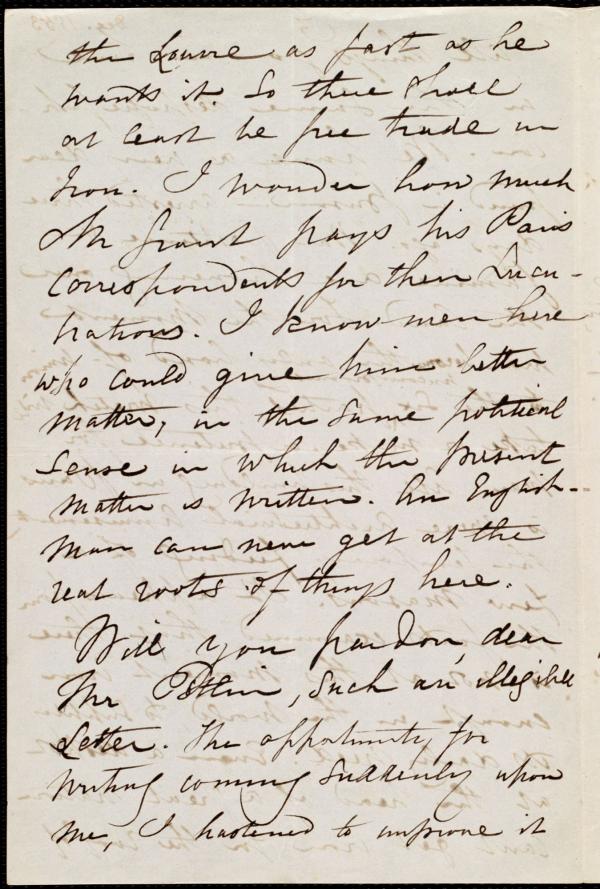 the Louvre as fast as he
wants it. So there shall
at least be free trade in
Iron. I wonder how much
Mr Grant pays his Paris
correspondents for their Lucu-
brations. I know men here
who could give him better
matter, in the same political
sense in which the present
matter is written. An English-
man can never get at the
real roots of things here.
Will you pardon, dear
Mr , such an illegible
Letter. The opportunity for
writing coming suddenly upon
me, I hastened to improve it